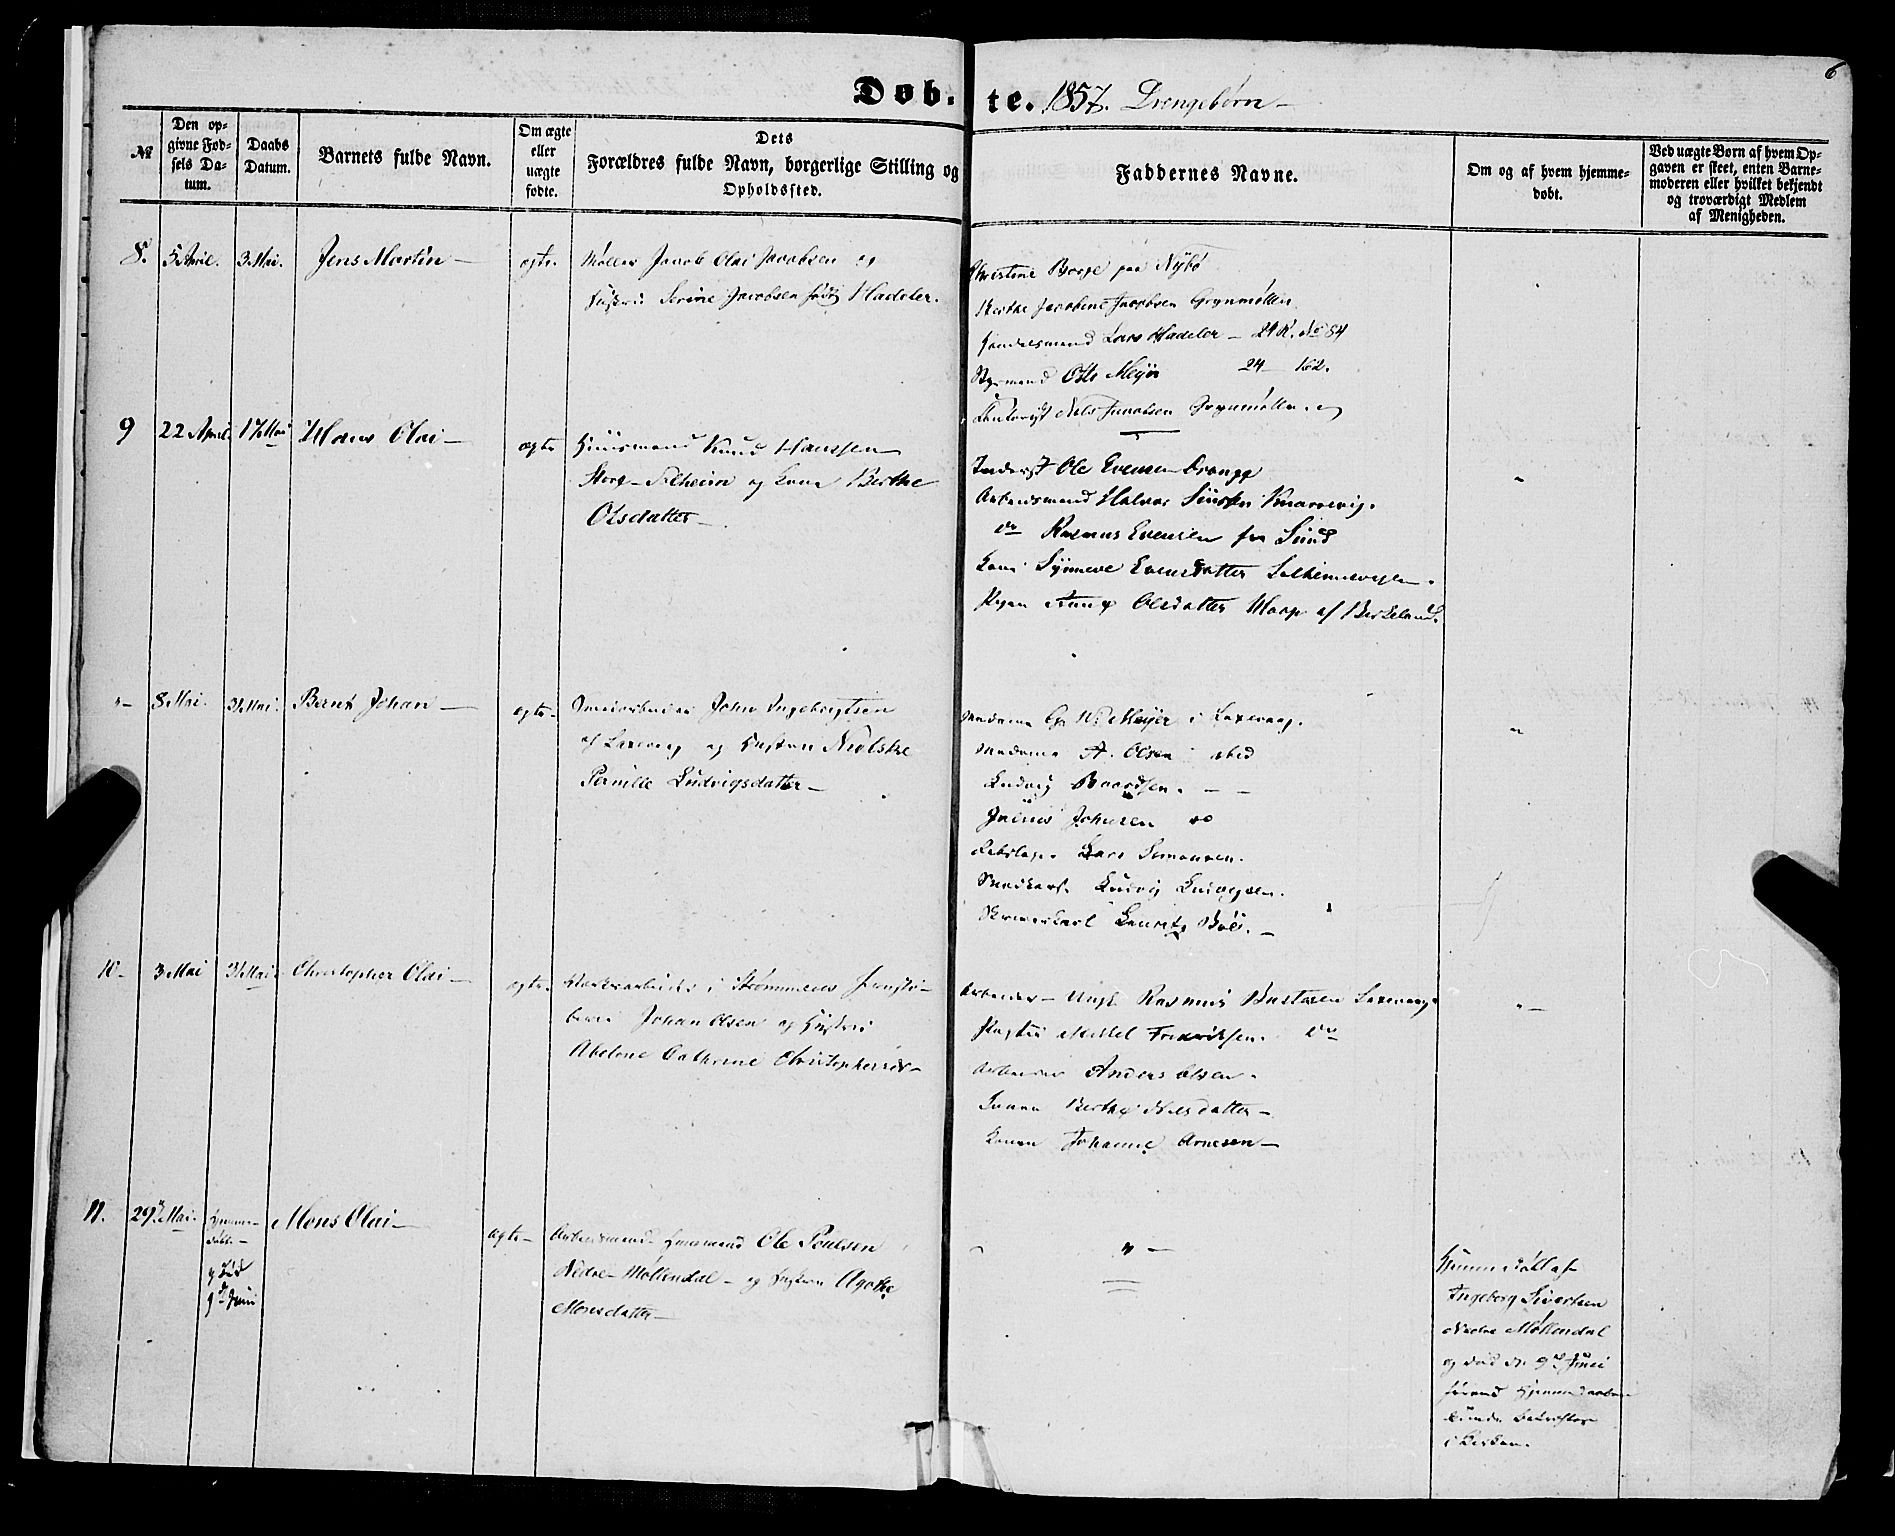 6
Døb. te. 1857. Drengebørn –
№
Den op-
givne Fød-
sels Da-
tum.
Daabs
Datum.
Barnets fulde Navn.
Om ægte
eller
uægte
fødte.
Dets
Forældres fulde Navn, borgerlige Stilling og
Opholdssted.
Faddernes Navne.
Om og af hvem hjemme-
døbt.
Ved uægte Børn af hvem Op-
gaven er skeet, enten Barne-
moderen eller hvilket bekjendt
og troværdigt Medlem
af Menigheden.
8. 5 April. 3 Mai. Jens Martin – ægte. Møller Jacob Olai Jacobsen og
Hustru Serine Jacobsen født Hadeler.
Christine Borge paa Nybø
Berthe Jacobine Jacobsen Grynmøllen
Handelsmand Lars Hadeler – 24 R. No 84
Styrmand Otto Meyer 24 – 162.
Niels Jacobsen Grynmøllen.
9 22 April. 17 Mai Hans Olai – ægte Huusmand Knud Hanssen
Store-Solheim og Kone Berthe
Olsdatter –
Inderst Ole Evensen
Arbeidsmand Halvor Knarrevig.
do Rasmus Evensen fra Sund
Kone Synneve Evensdatter
Pigen Anne Olsdatter af Birkeland.
"– 8 Mai. 31 Mai. Bernt Johan – ægte – John Ingebrigtsen
af Laxevaag og Hustru Nielske
Pernille Ludvigsdatter –
Madame Meyer i Laxevaag.
Madame A. Olsen i sted
Ludvig Baardsen. – –
Johnsen do
Lars Simonsen.
Ludvig Ludvigsen.
Lauritz
10 – 3 Mai 31 Mai. Christopher Olai – ægte. Værksarbeider i Strømmens Jernstø-
beri Johan Olsen og Hustru
Abelone Cathrine Christophersdr –
Arbeider – Ungk. Rasmus Laxevaag
Mikkel Fredriksen. do
Arbeider Anders Olsen.
Berthe Nilsdatter –
Konen Johanne Arnesen –
11. 29 Mai. Hjemme-
døbt –
og død
9de Juni
Mons Olai – ægte – Arbeidsmand Huusmand Ole Poulsen
Nedre-Møllendal – og Hustru Agathe
Monsdatter –
" –
Hjemmedøbt af
Ingeborg Sivertsen
Nedre Møllendal
og død d. 9de Juni
førend Hjemmedaaben
kunde Bekræftes
i Kirken.